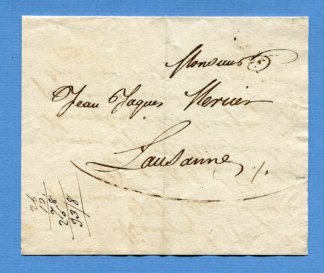 Monsieur
Jean Jaques Mercier
Lausanne
26
12
278
20
3318